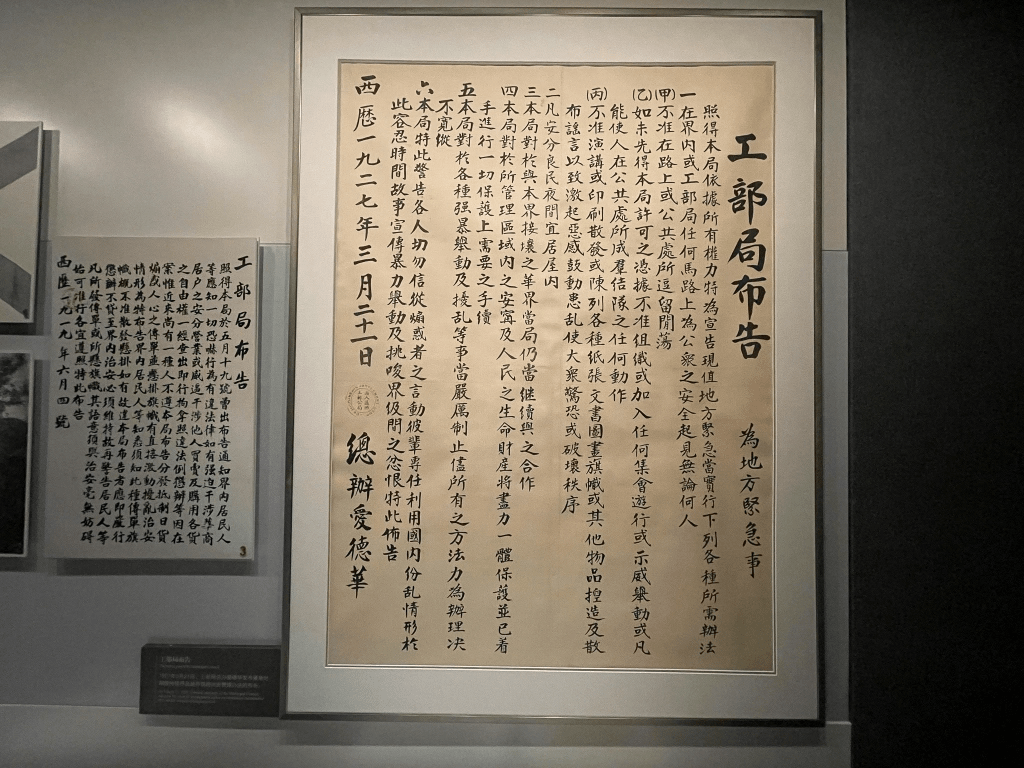 工部局布告
為地方緊急事
照得本局依據所有權力特為宣告現值地方緊急當實行下列各種所需辦法
一在界內或工部局任何馬路上為公衆之安全起見無論何人
(甲)不准在路上或公共處所逗留閒蕩
(乙)如未先得本局許可之憑據不准組織或加入任何集會遊行或示威舉動或凡
能使人在公共處所成羣結隊之任何動作
(丙)不准演講或印刷散發或陳列各種紙張文書圖畫旗幟或其他物品揑造及散
布謠言以致激起惡感鼓動患乱使大衆驚恐或破壞秩序
二凡安分良民夜間宜居屋内
三本局對於與本界接壤之華界當局仍當继續與之合作
四本局對於所管理區域内之安寗及人民之生命財産将盡力一體保護並已着
手進行一切保護上需要之手續
五本局對於各種强暴舉動及擾乱等事當嚴厲制止儘所有之方法力為辦理决
不寬縱
六本局特此警告各人切勿信從煽惑者之言動彼輩専任利用國内份乱情形於
此容忍時間故事宣傳暴力舉動及挑唆界级間之忿恨特此佈告
西歷一九二七年三月二十一日
總辦愛德華
工部局布告
照得本局於五月十九號曹出布告通知界内居民人
等應知一切恐嚇行為有違法律如有强迫干涉華商
居户之安分營業或威逼干涉他人買賣及購用各貨
之自由權一經查出即行拘拿照違法例懲辦等因在
案惟近來尚有一種人不遵本局布告分發抵制日貨
煽惑人心之傳單並懸掛旗幟有直接激動擾亂治安
情形為特布告界内居民人等知悉須知此種傳單旗
幟槪不准散發懸掛如有故違本局布告者應即嚴行
懲辦不貸至界内治安必須維持故再警告居民人等
凡所發傳單或所懸旗幟其語意須與治安毫無妨碍
始可准行各宜遵照特此布告
西歷一九一九年六月四號
3
工部局布告